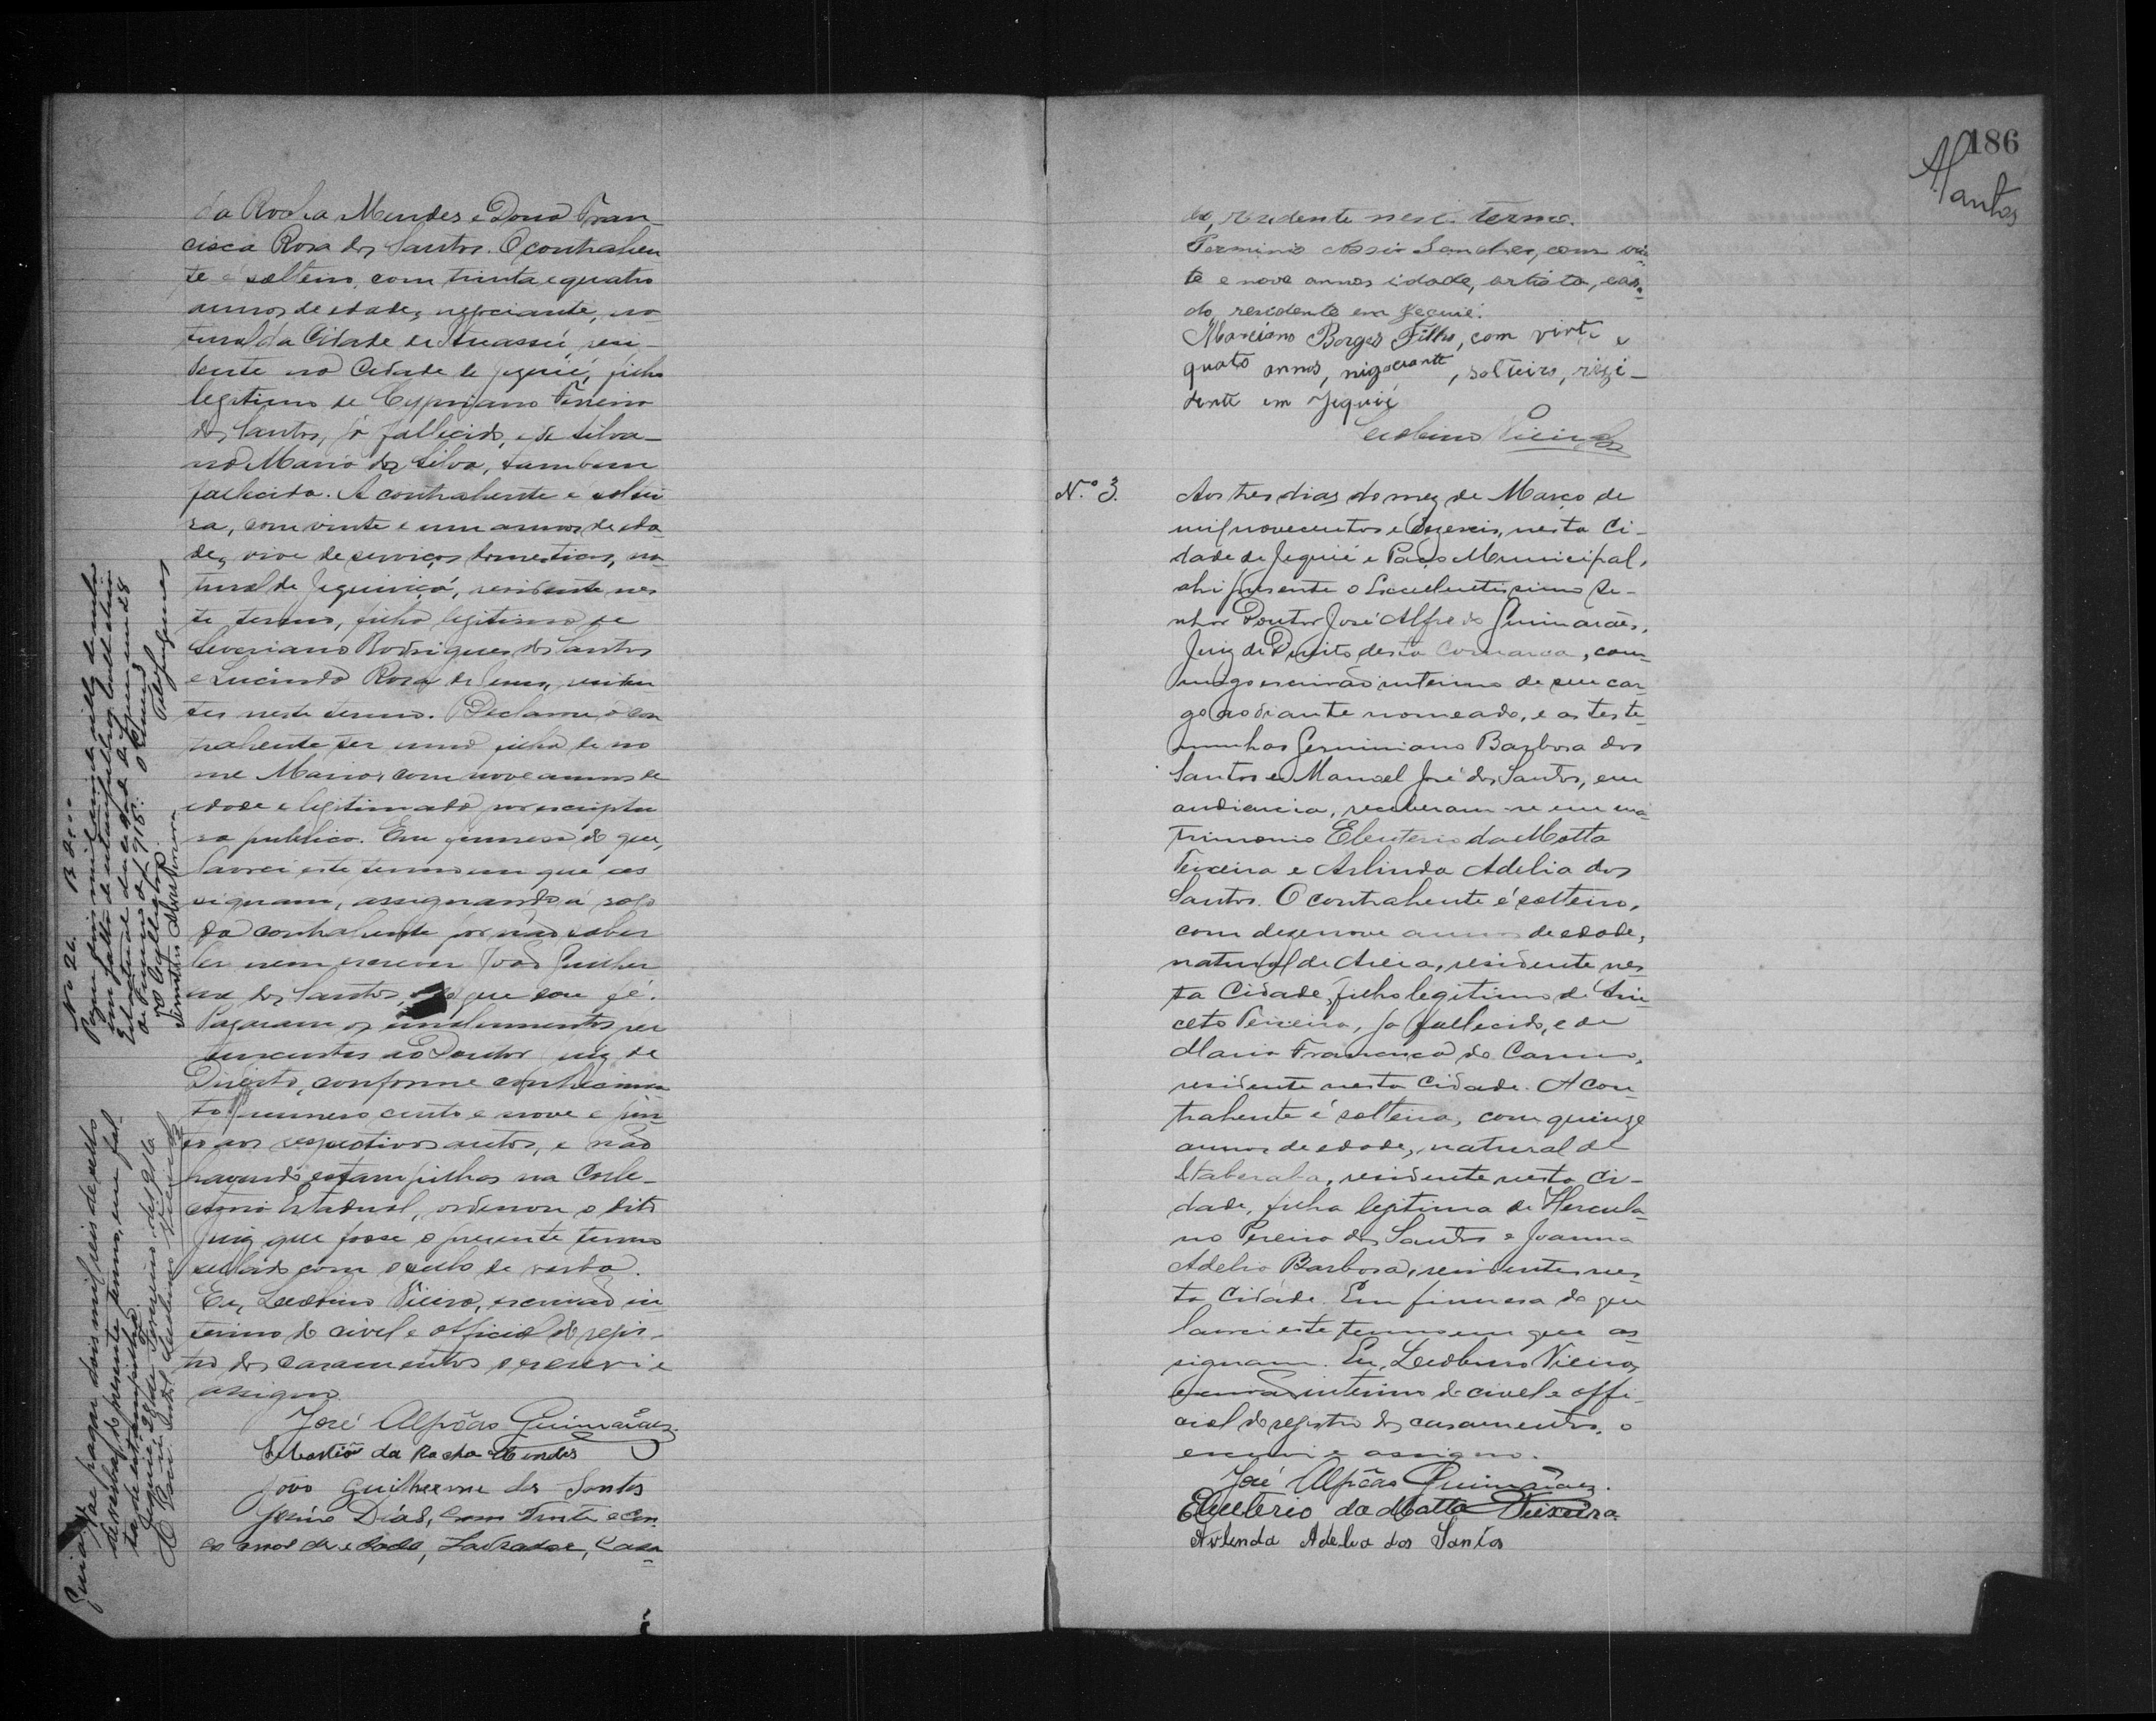 da Rocha Mendes e Dona Fran-
cisca Rosa dos Santos. O contrahen
te é solteiro, com trinta e quatro
annos de edade, negociante, na-
tural da Cidade de Amassú, resi-
dente na Cidade de Jequié, filho
legitimo de Cypriano Ferreira
dos Santos, já fallecido, e de Silva-
na Maria da Silva, tambem
fallecida. A contrahente é soltei
ra, com vinte e um annos de eda-
de, vive de serviços domesticos, na-
tural de Jequiriçá, residente nes
te termo, filha legitima de
Severiano Rodrigues dos Santos
e Lucinda Rosa de Jesus, residen
tes neste termo. Declarou o con
trahente ter uma filha de no
me Maria, com nove annos de
edade e legitimada por escriptu
ra publica. Em firmesa do que,
lavrei este termo em que as
signam, assignando á rogo
da contrahente por não saber
ler nem escrever João Guilher
me dos Santos, do que dou fé.
Pagaram os emolumentos per
tencentes ao Doutor Juiz de
Direito, conforme conhecimen
to numero cento e nove e jun
to aos respectivos autos, e não
havendo estampilhas na Colle-
ctoria Estadual, ordenou o dito
Juiz que fosse o presente termo
sellado com o sello de verba.
Eu, Leobino Vieira, escrivão in
terino do civel e official do regis-
tro dos casamentos o escrevi e
assigno.
José Alfredo Guimarães
Sebastião da Rocha Mendes
João Guilherme dos Santos
Dias, com Trinta e cin
co annos de edade, Lavrador, Casa-
No 26. R
Pagou
em falta de estampilhas
Estadual da cidade de Jequié em 28
de Fevereiro de 1916.
O Collector
Guia
Vae pagar dois mil reis de sello
de verba do presente termo, em fal-
ta de estampilha.
Jequié, 28 de Fevereiro de 1916
186
Santos
do, residente neste termo.
Sanches, com vin-
te e nove annos idade, artista, casa-
do, residente em Jequié.
Marciano Borges Filho, com vinte e
quato annos, nigociante, solteiro, rizi-
dente em Jequié
Leobino Vieira
N.º 3.
Aos tres dias do mez de Março de
mil novecentos e dezeseis, nesta Ci-
dade de Jequié e Paço Municipal,
ahi presente o Excellentissimo Se-
nhor Doutor José Alfredo Guimarães,
Juiz de Direito desta Comarca, com-
migo escrivão interino de seu car-
go ao diante nomeado, e as teste-
munhas Germiniano Barbosa dos
Santos e Manoel José dos Santos, em
audiencia, receberam-se em ma-
trimonio Eleuterio da Motta
Teixeira e Arlinda Adelia dos
Santos. O contrahente é solteiro,
com dezenove annos de edade,
natural de Areia, residente nes-
ta Cidade, filho legitimo de Ani-
ceto Teixeira, já fallecido, e de
Maria Francisca do Carmo,
residente nesta Cidade. A con-
trahente é solteira, com quinze
annos de edade, natural de
Itaberaba, residente nesta Ci-
dade, filha legitima de Hercula-
no Pereira dos Santos e Joanna
Adelia Barbosa, residentes nes-
ta Cidade. Em firmesa do que
lavrei este termo em que as-
signam. Eu, Leobino Vieira,
escrivão interino do civel e offi-
cial do registro dos casamentos, o
escrevi e assigno.
José Alfredo Guimarães.
Eleuterio da Motta Teixeira
Arlenda Adelia dos Santos